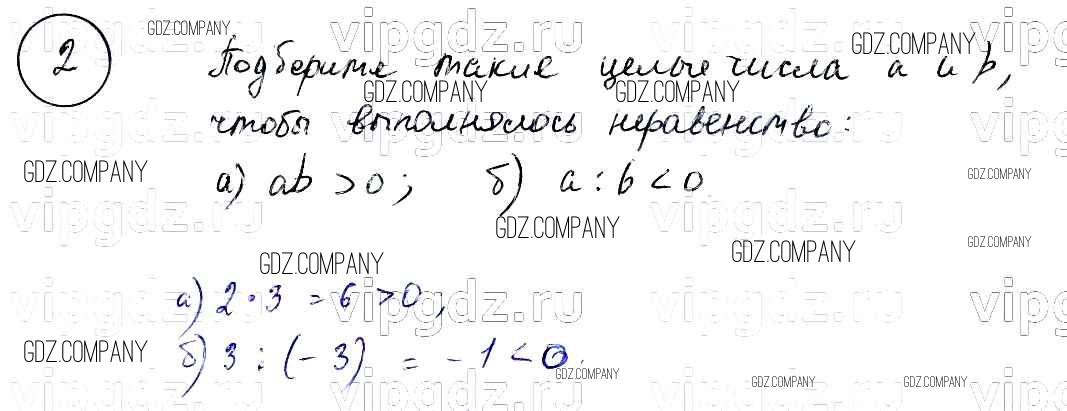 2
Подберите такие целые числа a и b,
чтобы выполнялось неравенство:
а) ab > 0; б) a : b < 0
а) 2 · 3 = 6 > 0,
б) 3 : (- 3) = - 1 < 0.
GDZ.COMPANY
GDZ.COMPANY
GDZ.COMPANY
GDZ.COMPANY
GDZ.COMPANY
GDZ.COMPANY
GDZ.COMPANY
GDZ.COMPANY
GDZ.COMPANY
GDZ.COMPANY
GDZ.COMPANY
GDZ.COMPANY
GDZ.COMPANY
GDZ.COMPANY
vipgdz.ru
vipgdz.ru
vipgdz.ru
vipgdz.ru